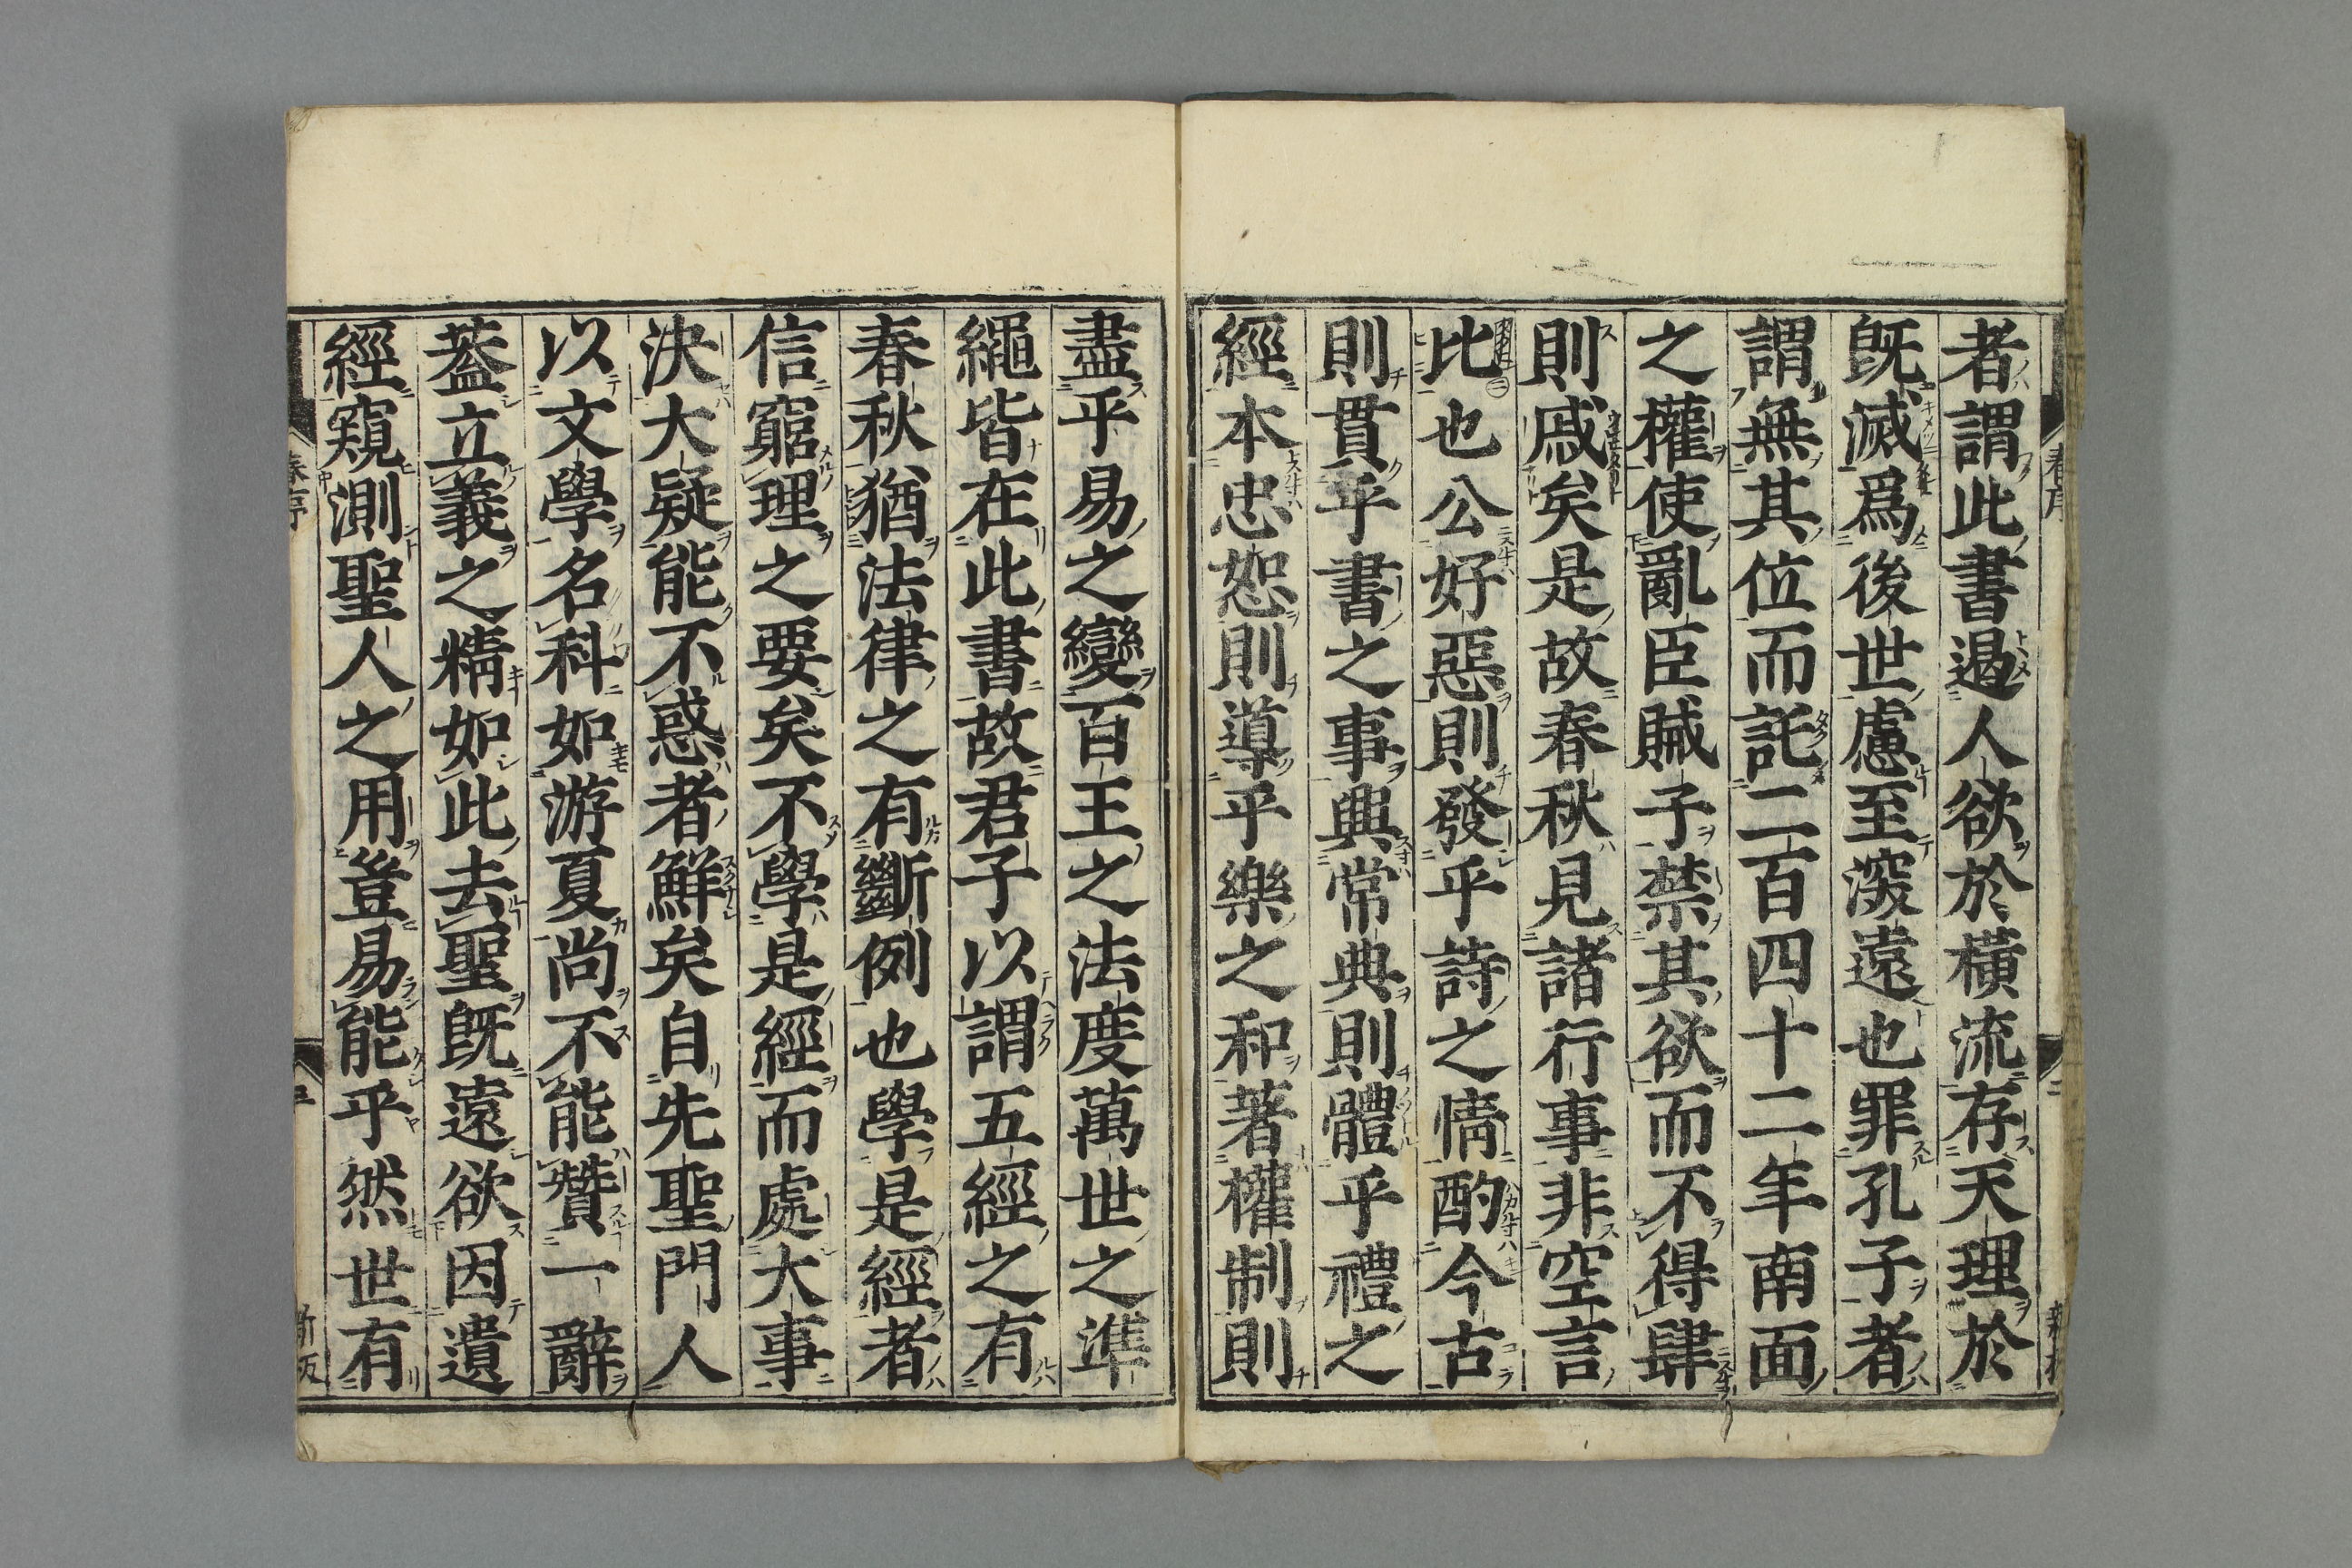 者謂此書遏人欲於橫流存天理於
旣滅爲後世慮至深遠也罪孔子者
謂無其位而託二百四十二年南面
之權使亂臣賊子禁其欲而不得肆
則戚矣是故春秋見諸行事非空言
比也公好惡則發乎詩之情酌今古
則貫乎書之事興常典則體乎禮之
經本忠恕則導乎樂之和著權制則
盡乎易之變百王之法度萬世之準
繩皆在此書故君子以謂五經之有
春秋猶法律之有斷例也學是經者
信窮理之要矣不學是經而處大事
決大疑能不惑者鮮矣自先聖門人
以文學名科如游夏尚不能贊一辭
蓋立義之精如此去聖旣遠欲因遺
經窺測聖人之用豈易能乎然世有